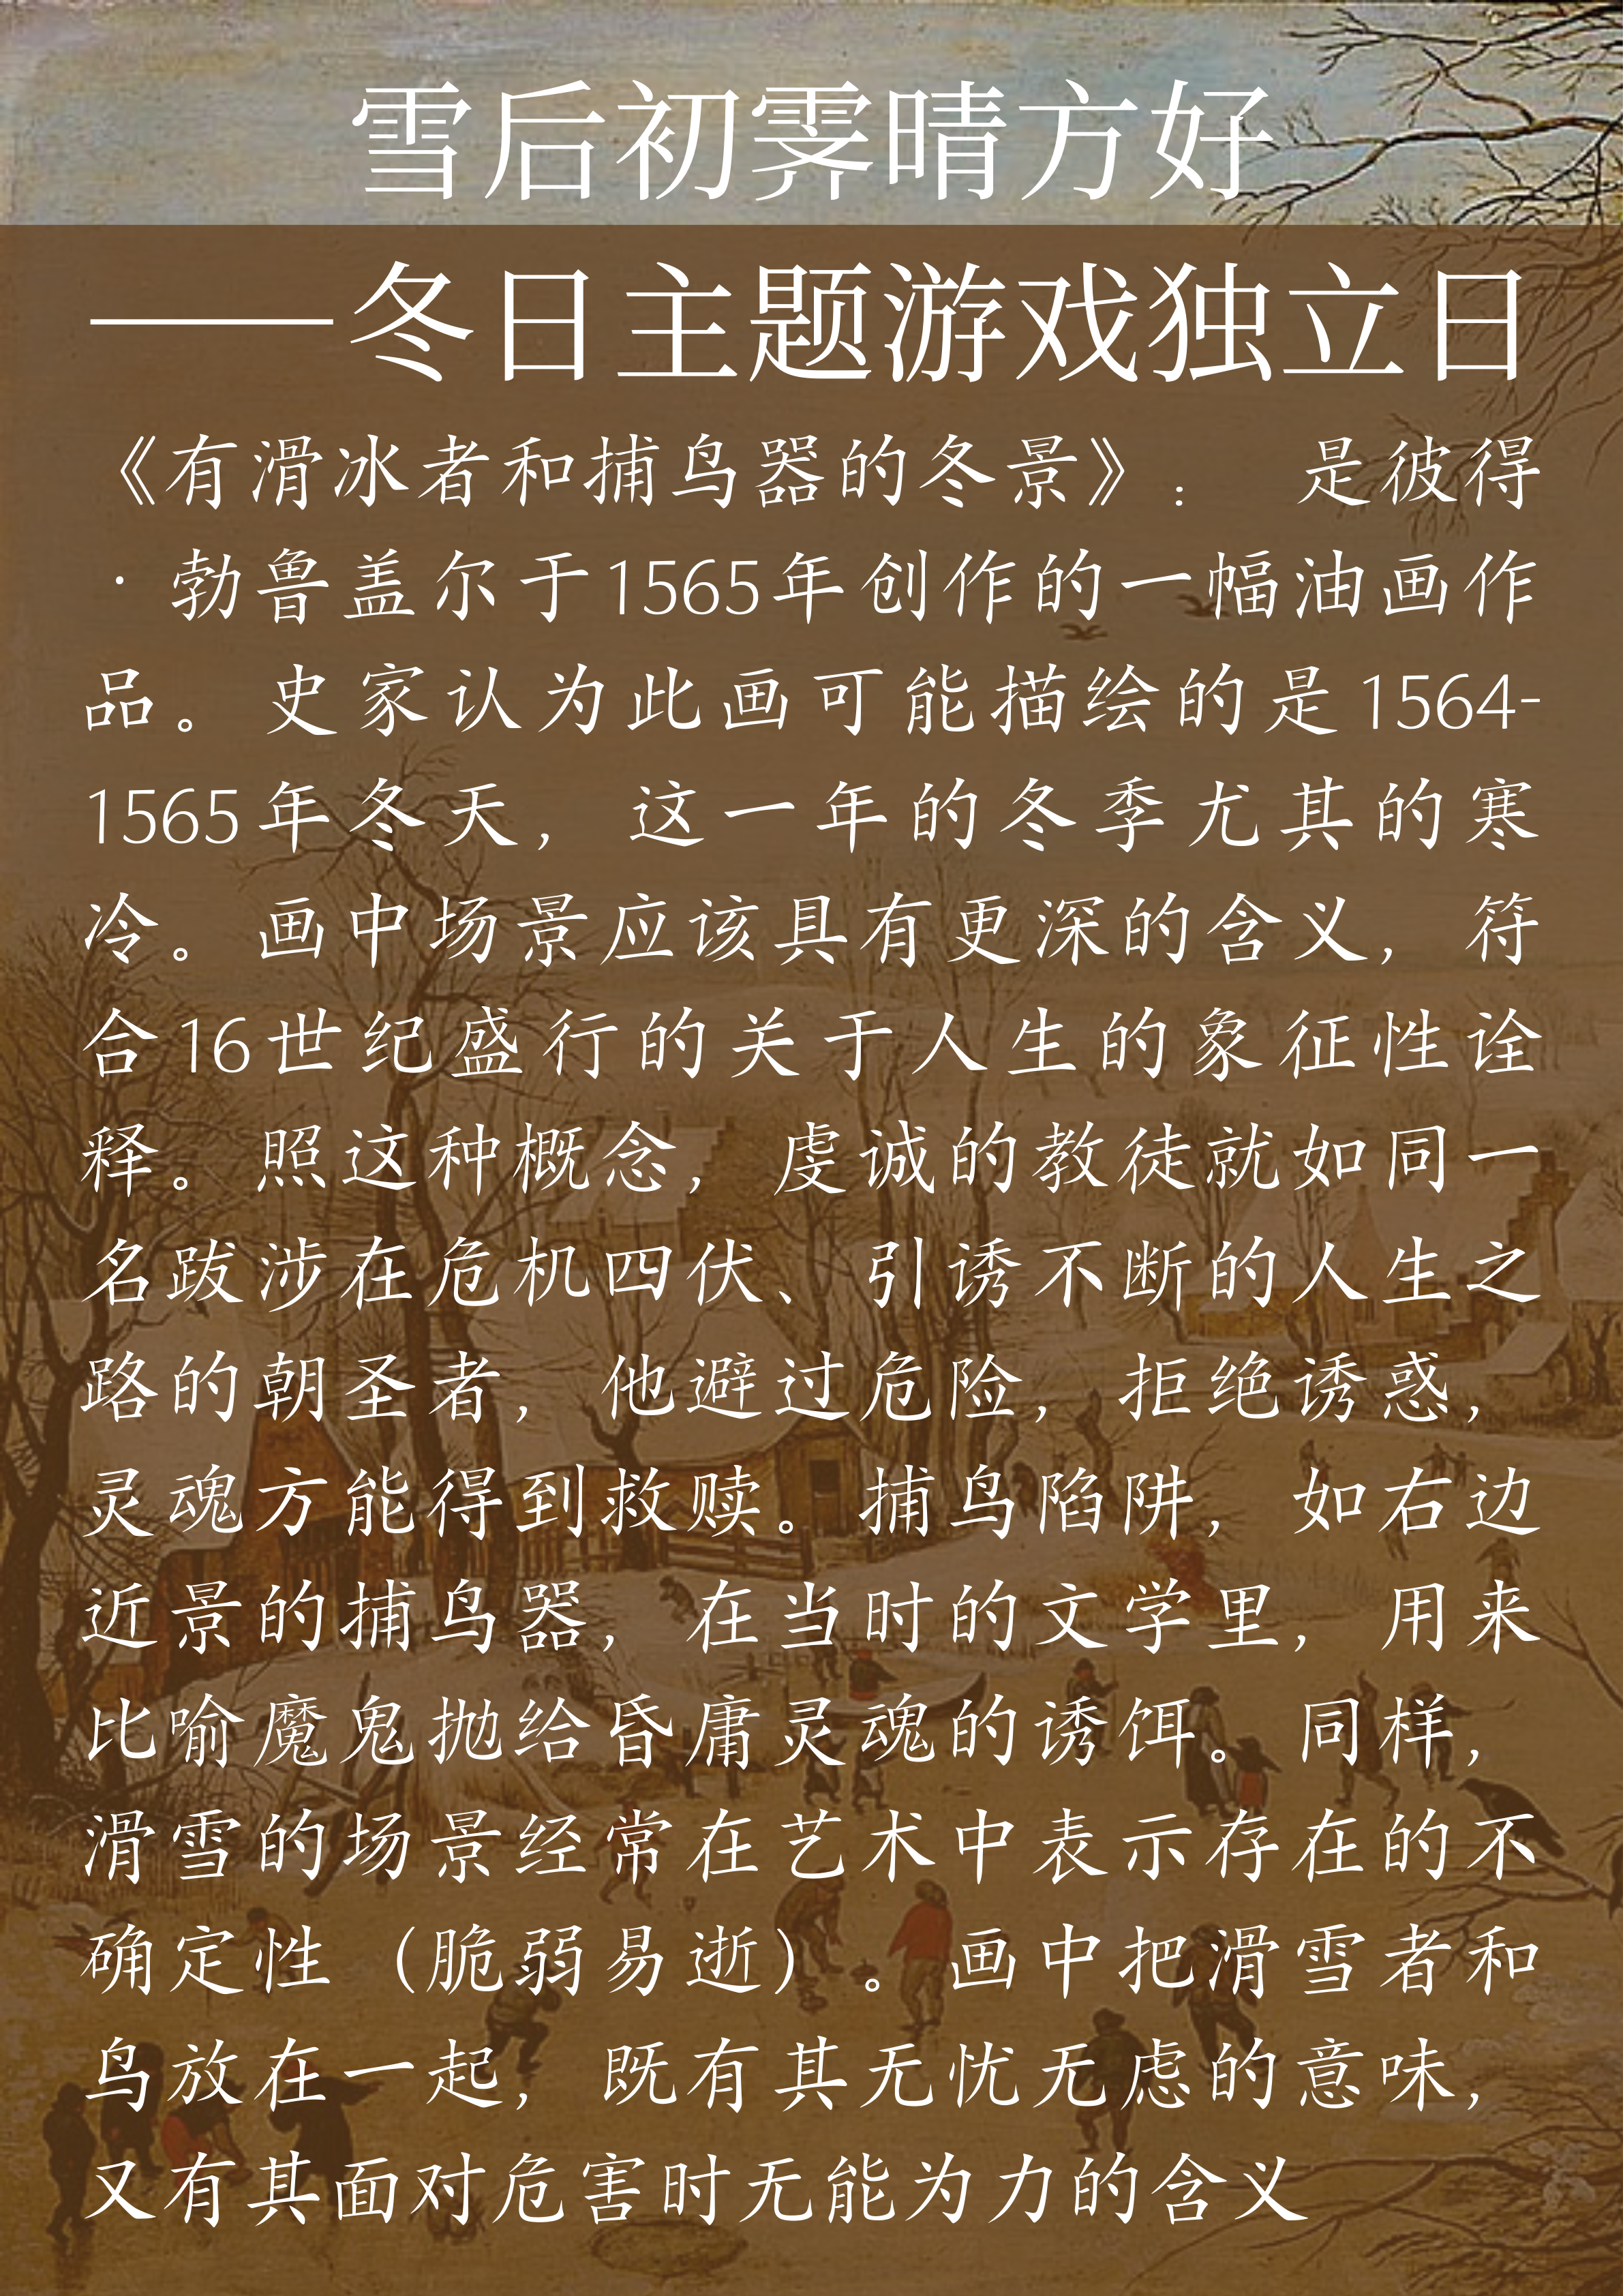 雪后初霁晴方好
——冬日主题游戏独立日
《有滑冰者和捕鸟器的冬景》： 是彼得
·勃鲁盖尔于1565年创作的一幅油画作
品。史家认为此画可能描绘的是1564-
1565年冬天，这一年的冬季尤其的寒
冷。画中场景应该具有更深的含义，符
合16世纪盛行的关于人生的象征性诠
释。照这种概念，虔诚的教徒就如同一
名跋涉在危机四伏、引诱不断的人生之
路的朝圣者，他避过危险，拒绝诱惑，
灵魂方能得到救赎。捕鸟陷阱，如右边
近景的捕鸟器，在当时的文学里，用来
比喻魔鬼抛给昏庸灵魂的诱饵。同样，
滑雪的场景经常在艺术中表示存在的不
确定性（脆弱易逝）。画中把滑雪者和
鸟放在一起，既有其无忧无虑的意味，
又有其面对危害时无能为力的含义